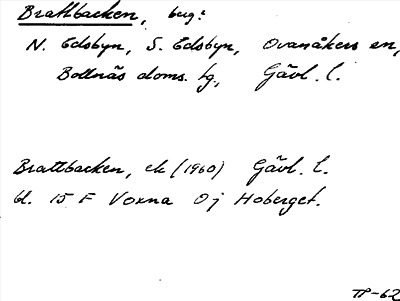 Brattbacken, berg:
N. Edsbyn, S. Edsbyn, Ovanåkers sn,
Bollnäs doms. tg, Gävl. l.
Brattbacken, ek (1960) Gävl. l.
bl. 15 F Voxna 0j Hoberget.
TP-62